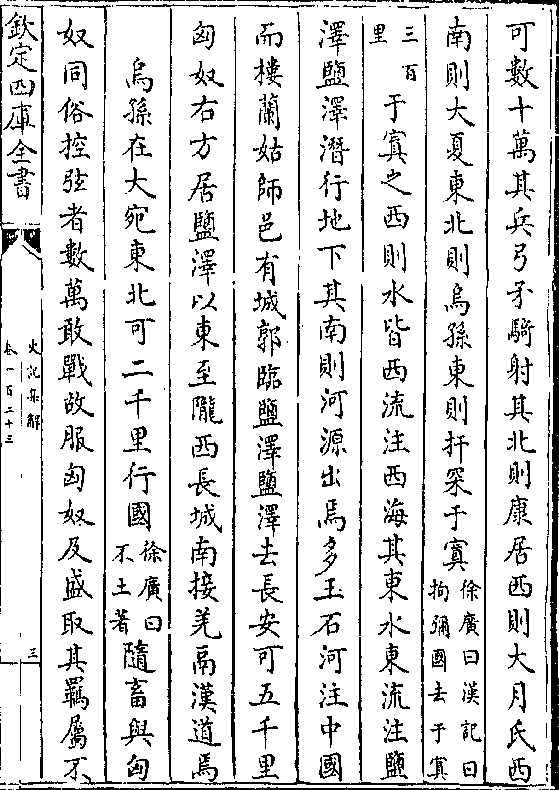 可數十萬其兵弓矛騎射其北則康居西則大月氏西
南則大夏東北則烏孫東則扞罙于窴徐廣曰漢記曰拘彌國去于窴
三百里于窴之西則水皆西流注西海其東水東流注鹽
澤鹽澤潛行地下其南則河源出焉多玉石河注中國
而樓蘭姑師邑有城郭臨鹽澤鹽澤去長安可五千里
匈奴右方居鹽澤以東至隴西長城南接羌鬲漢道焉
烏孫在大宛東北可二千里行國徐廣曰不土著隨畜與匈
奴同俗控弦者數萬敢戰故服匈奴及盛取其羈屬不
欽定四庫全書
史記集解
卷一百二十三
三